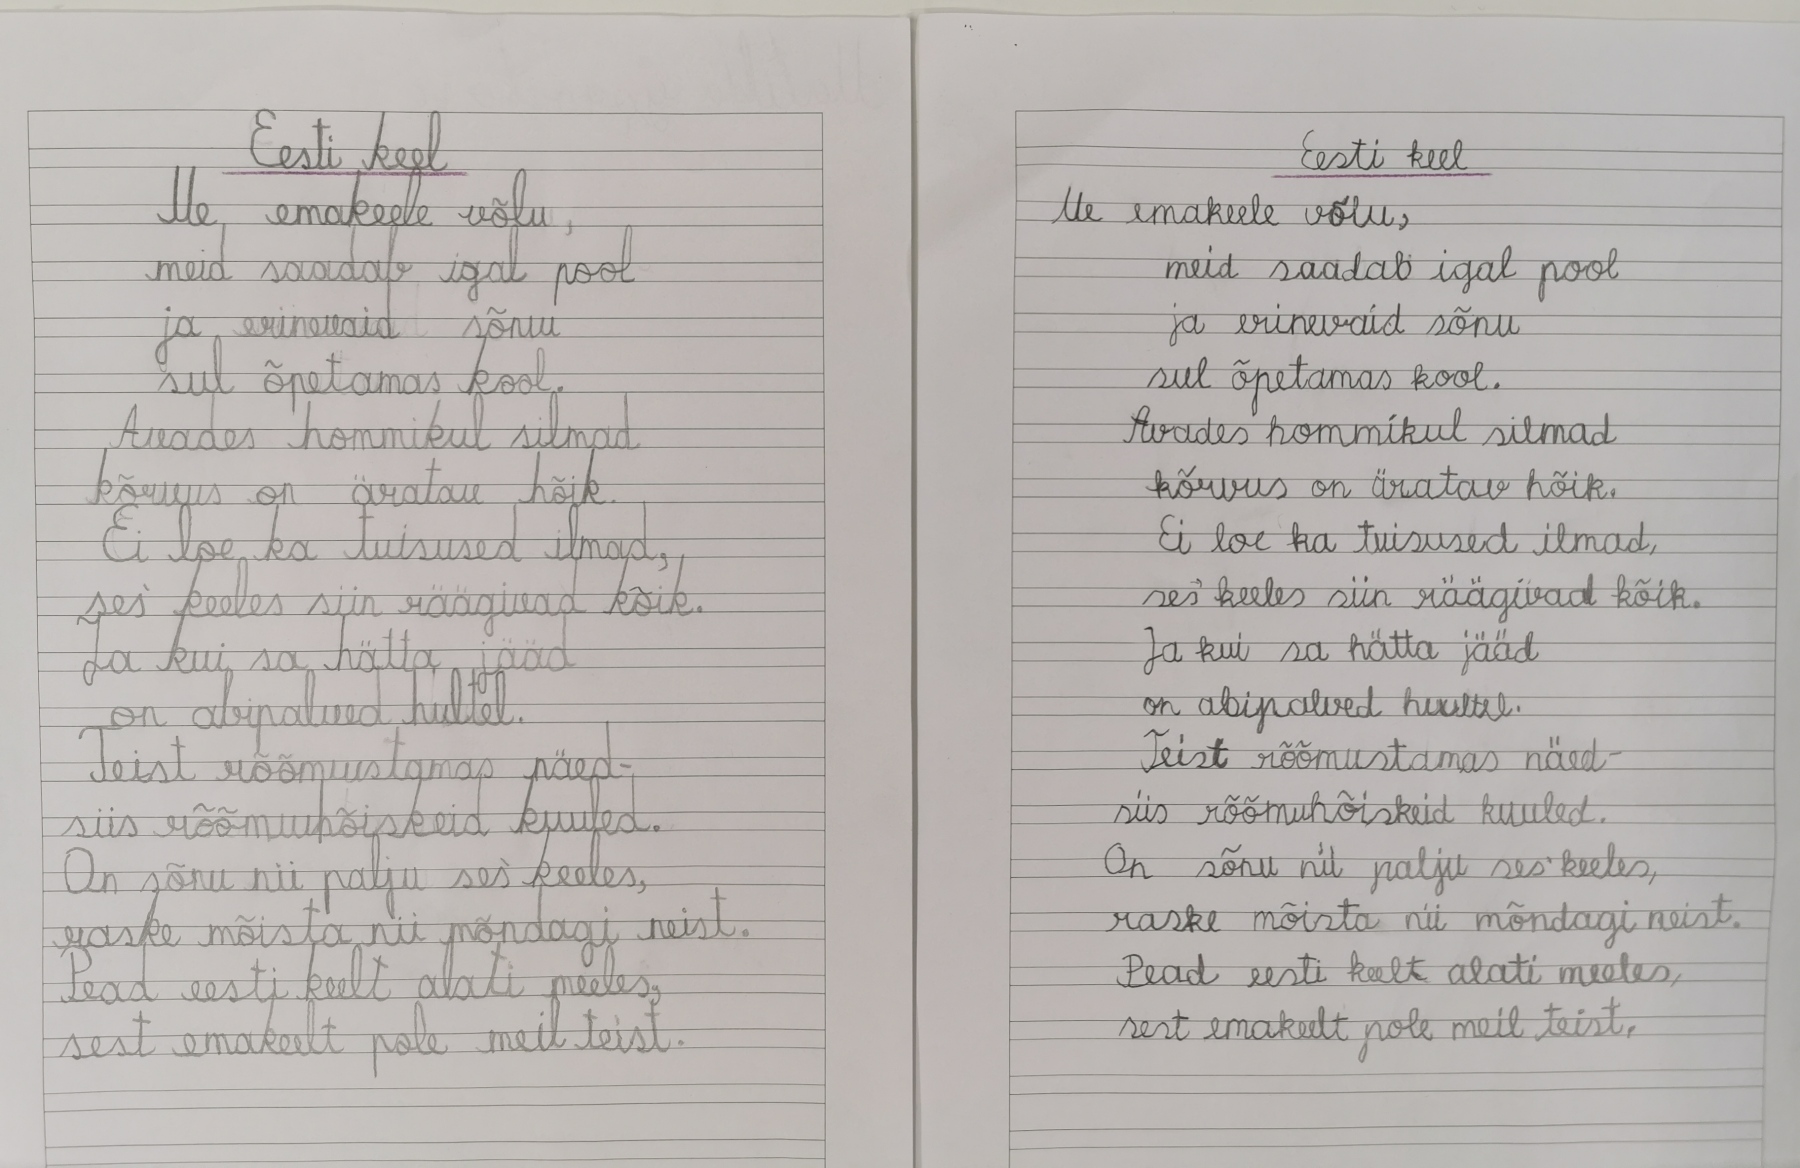 Eesti keel
Me emakeele võlu,
meid saadab igal pool
ja erinevaid sõnu
sul õpetamas kool.
Avades hommikul silmad
kõrvus on äratav hõik.
Ei loe ka tuisused ilmad,
ses' keeles siin räägivad kõik.
Ja kui sa hätta jääd
on abipalved hultel.
Teist rõõmustamas näed-
siis rõõmuhõiskeid kuuled.
On sõnu nii palju ses' keeles,
raske mõista nii mõndagi neist.
Pead eesti keelt alati meeles,
sest emakeelt pole meil teist.
Eesti keel
Me emakeele võlu,
meid saadab igal pool
ja erinevaid sõnu
sul õpetamas kool.
Avades hommikul silmad
kõrvus on äratav hõik.
Ei loe ka tuisused ilmad,
ses' keeles siin räägivad kõik.
Ja kui sa hätta jääd
on abipalved huultel.
Teist rõõmustamas näed-
siis rõõmuhõiskeid kuuled.
On sõnu nii palju ses' keeles,
raske mõista nii mõndagi neist.
Pead eesti keelt alati meeles,
sest emakeelt pole meil teist.